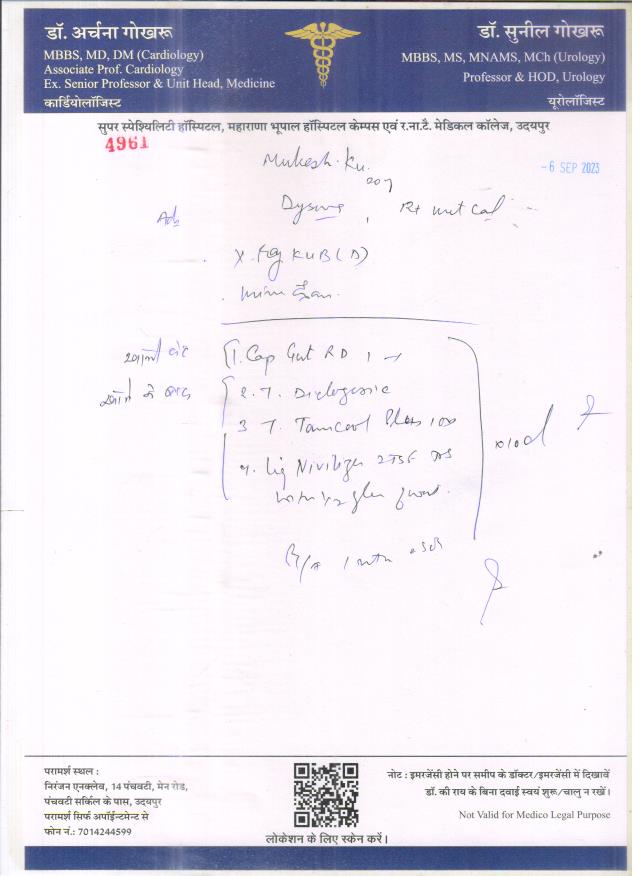 डॉ. अर्चना गोखरू
MBBS, MD, DM (Cardiology)
Associate Prof. Cardiology
Ex. Senior Professor & Unit Head, Medicine
कार्डियोलॉजिस्ट
डॉ. सुनील गोखरू
MBBS, MS, MNAMS, MCh (Urology)
Professor & HOD, Urology
यूरोलॉजिस्ट
सुपर स्पेश्यिलिटी हॉस्पिटल, महाराणा भूपाल हॉस्पिटल केम्पस एवं र.ना.टै. मेडिकल कॉलेज, उदयपुर
4961
-6 SEP 2023
Mukesh. Ku.
20y
Adv
X. Ray KUB (D)
खाली पेट
1. Cap Gut RD 1
खाने के बाद
2. T.
3 T. Plus
4. Liq 2TSF
1/2 glass
परामर्श स्थल :
निरंजन एनक्लेव, 14 पंचवटी, मेन रोड,
पंचवटी सर्किल के पास, उदयपुर
परामर्श सिर्फ अपॉईन्टमेन्ट से
फोन नं.: 7014244599
लोकेशन के लिए स्केन करें।
नोट : इमरजेंसी होने पर समीप के डॉक्टर/इमरजेंसी में दिखावें
डॉ. की राय के बिना दवाई स्वयं शुरू/चालु न रखें।
Not Valid for Medico Legal Purpose